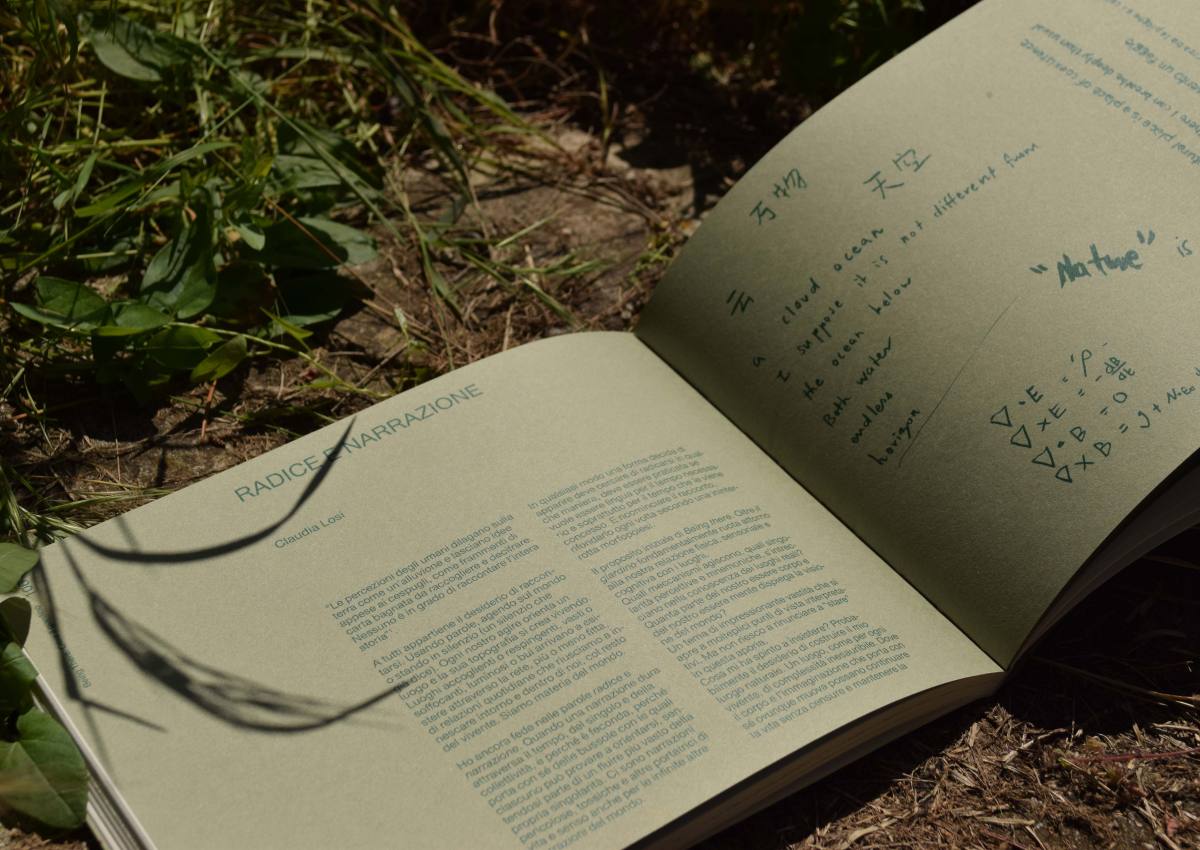 RADICE E NARRAZIONE
Claudia Losi
"Le percezioni degli umani dilagano sulla
terra come un'alluvione e lasciano idee
appese ai cespugli, come frammenti di
carta bagnata da raccogliere e decifrare
Nessuno è in grado di raccontare l'intera
storia"¹
A tutti appartiene il desiderio di raccon-
tarsi. Usando parole, agendo sul mondo
o stando in silenzio (un silenzio che
agisce). Ogni nostro agire orienta un
luogo e la sua topografia si crea vivendo
Luoghi accoglienti o respingenti, vasti o
soffocanti, luminosi o bui arrivano a esi-
stere attraverso la rete, più o meno fitta,
di relazioni quotidiane che riusciamo a in-
nescare intorno e dentro di noi, col resto
del vivente. Siamo materia del mondo.
Ho ancora fede nelle parole radice e
narrazione. Quando una narrazione dura
attraversa il tempo, del singolo e della
collettività, è perché è feconda, perché
porta con sé delle bussole con le quali
ciascuno può provare a orientarsi, sen-
tendosi parte di un fluire più vasto della
propria singolarità. Ci sono narrazioni
pericolose, tossiche e altre portatrici di
vita e senso anche per le infinite altre
narrazioni del mondo.
In qualsiasi modo una forma decida di
apparire deve cercare di radicarsi: in qual-
che maniera, deve essere praticata se
vuole essere lingua per il tempo necessa-
rio e soprattutto per il tempo che le viene
concesso. E ricominciare il racconto,
rifondarlo ogni volta secondo una ininter-
rotta morfopoiesi.
Il proposito iniziale di Being there. Oltre il
giardino fondamentalmente ruota attorno
alla nostra relazione fisica, sensoriale e
cognitiva con i luoghi.
Quali meccanismi agiscono, quali singo-
larità percettive e mnemoniche, s'intrec-
ciano nella conoscenza dei luoghi reali?
Quanta parte del nostro essere corpo e
dal nostro essere mente dispiega la visio-
ne del mondo?
Un tema di impressionante vastità che si
apre a molteplici punti di vista interpreta-
tivi. Ma non riesco a rinunciare a "stare"
in questa aporia.
Cosa mi ha spinto a insistere? Proba-
bilmente il desiderio di costruire il mio
luogo naturale. Un luogo, come per ogni
vivente, di complessità inesauribile. Dove
il corpo e l'immaginazione che porta con
sé ovunque muova possano continuare
la vita senza censure e mantenere la
万物
天空
云
a cloud ocean
I suppose it is not different from
the ocean below
Both water
endless
horizon
"Nature" is
∇·E = ρ
∇×E = -∂B/∂t
∇·B = 0
∇×B = J +